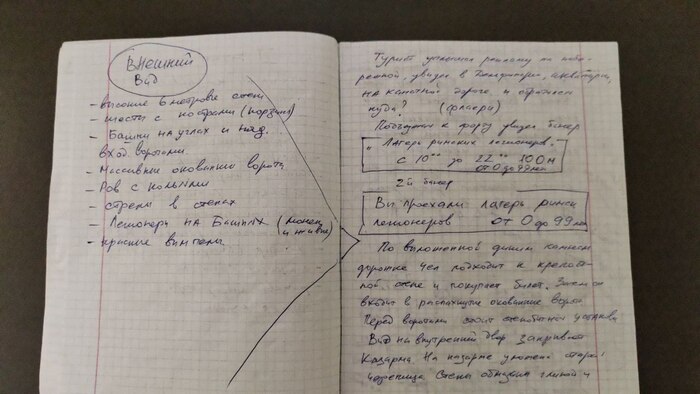 Внешний
Вид
- высокие 6 метровые стены
- шесты с кострами (корзина)
- Башни на углах и над
вход. воротами.
- Массивные окованные ворота
- Ров с кольями
- стрелы в стенах
- Легионеры на Башнях (манек
и живые)
- красные вымпелы
Турист услышал рекламу на набе-
режной, увидел в Дельфинарии, аквапарке,
на канатной дороге и обратился
куда? (флаера)
Подъезжая к форту увидел банер
"Лагерь римских легионеров"
с 10⁰⁰ до 22⁰⁰ 100 м
от 0 до 99 лет
2й банер
Вы проехали лагерь римск
легионеров от 0 до 99 лет
По выложенной диким камнем
дорожке чел подходит к крепост-
ной стене и покупает билет. Затем он
входит в распахнутые окованные ворота
Перед воротами стоит стенобитная установка
Вид на внутренний двор закрывает
Казарма. На казарме уложена старая
черепица. Стены обмазаны глиной и